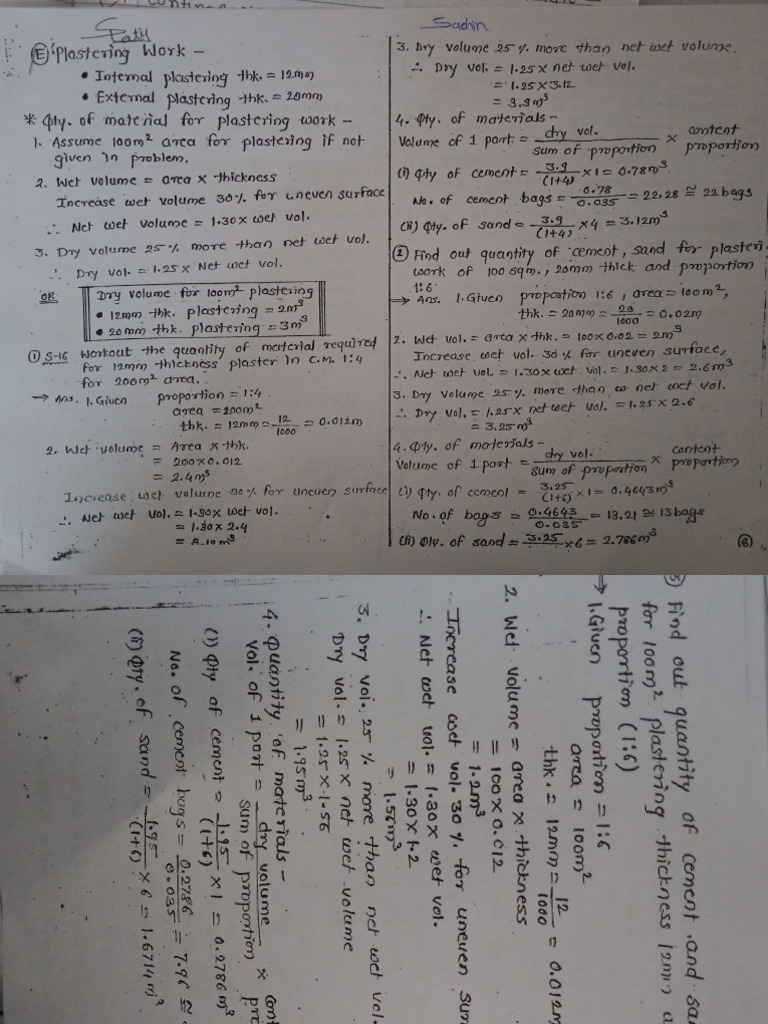 Patil
Sachin
(E) Plastering Work -
• Internal plastering thk. = 12mm
• External plastering thk. = 20mm
* Qty. of material for plastering work -
1. Assume 100m² area for plastering if not
given in problem.
2. Wet volume = area x thickness
Increase wet volume 30% for uneven surface
∴ Net wet volume = 1.30 x wet vol.
3. Dry volume 25% more than net wet vol.
∴ Dry vol. = 1.25 x Net wet vol.
OR
Dry volume for 100m² plastering
• 12mm thk. plastering = 2m³
• 20mm thk. plastering = 3m³
(1) S-16 Workout the quantity of material required
for 12mm thickness plaster in C.M. 1:4
for 200m² area.
→ Ans. 1. Given proportion = 1:4
area = 200m²
thk. = 12mm = 12/1000 = 0.012m
2. Wet volume = Area x thk.
= 200 x 0.012
= 2.4m³
Increase wet volume 30% for uneven surface
∴ Net wet vol. = 1.30 x wet vol.
= 1.30 x 2.4
= 3.10m³
3. Dry volume 25% more than net wet volume.
∴ Dry vol. = 1.25 x net wet vol.
= 1.25 x 3.12
= 3.9m³
4. Qty. of materials -
Volume of 1 part = dry vol. / sum of proportion x content proportion
(i) Qty of cement = 3.9/(1+4) x 1 = 0.78m³
No. of cement bags = 0.78/0.035 = 22.28 ≅ 22 bags
(ii) Qty. of sand = 3.9/(1+4) x 4 = 3.12m³
(2) Find out quantity of cement, sand for plaster
work of 100 sqm., 20mm thick and proportion
1:6
→ Ans. 1. Given proportion 1:6, area = 100m²,
thk. = 20mm = 20/1000 = 0.02m
2. Wet vol. = area x thk. = 100 x 0.02 = 2m³
Increase wet vol. 30% for uneven surface,
∴ Net wet vol = 1.30 x wet vol. = 1.30 x 2 = 2.6m³
3. Dry volume 25% more than net wet vol.
∴ Dry vol. = 1.25 x net wet vol. = 1.25 x 2.6
= 3.25m³
4. Qty. of materials -
Volume of 1 part = dry vol. / sum of proportion x content proportion
(i) Qty. of cement = 3.25/(1+6) x 1 = 0.4643m³
No. of bags = 0.4643/0.035 = 13.21 ≅ 13 bags
(ii) Qty. of sand = 3.25/(1+6) x 6 = 2.786m³
(8)
(3) Find out quantity of cement and sa
for 100m² plastering thickness 12mm a
proportion (1:6)
→ 1. Given proportion = 1:6
area = 100m²
thk. = 12mm = 12/1000 = 0.012m
2. Wet volume = area x thickness
= 100 x 0.012
= 1.2m³
Increase wet vol. 30% for uneven sur
∴ Net wet vol. = 1.30 x wet vol.
= 1.30 x 1.2
= 1.56m³
3. Dry vol. 25% more than net wet vol.
Dry vol. = 1.25 x net wet volume
= 1.25 x 1.56
= 1.95m³
4. Quantity of materials -
Vol. of 1 part = dry volume / sum of proportion x cont pro
(i) Qty of cement = 1.95/(1+6) x 1 = 0.2786m³
No. of cement bags = 0.2786/0.035 = 7.96 ≅
(ii) Qty. of sand = 1.95/(1+6) x 6 = 1.6714m³